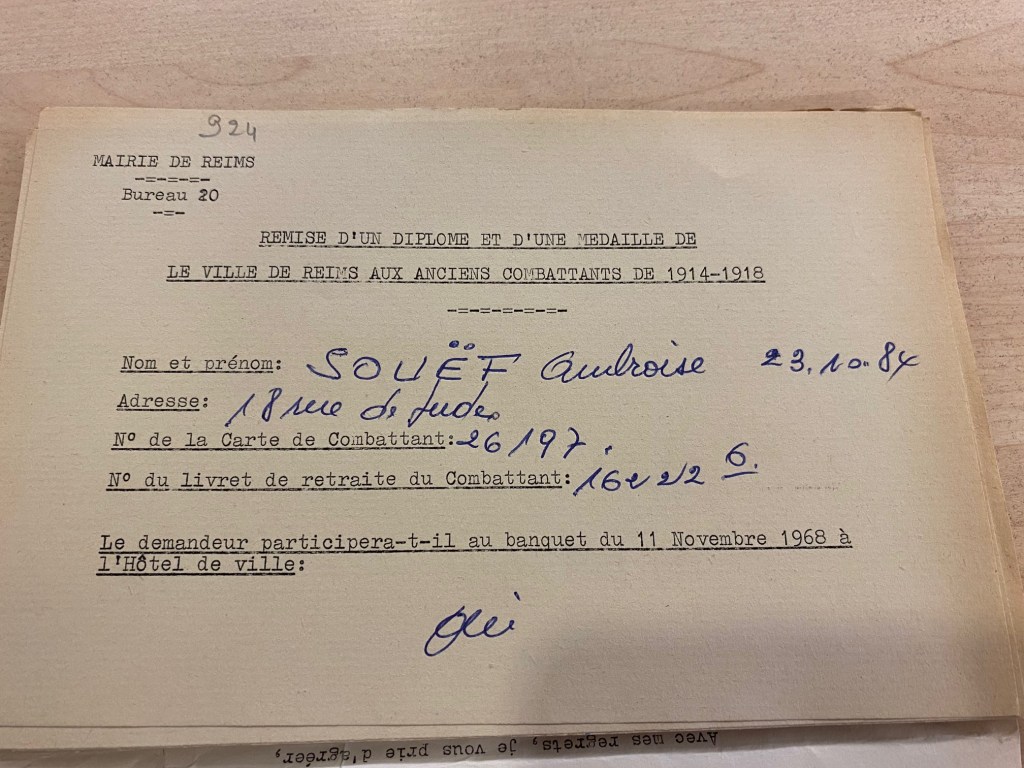 924
MAIRIE DE REIMS
-=-=-=-=-
Bureau 20
-=-
REMISE D'UN DIPLOME ET D'UNE MEDAILLE DE
LE VILLE DE REIMS AUX ANCIENS COMBATTANTS DE 1914-1918
-=-=-=-=-=-=-
Nom et prénom: SOUËF Ambroise 23.10.84
Adresse: 18 rue de
N° de la Carte de Combattant: 26197.
N° du livret de retraite du Combattant: 6.
Le demandeur participera-t-il au banquet du 11 Novembre 1968 à
l'Hôtel de ville:
oui
Avec mes regrets, je vous prie d'agréer,